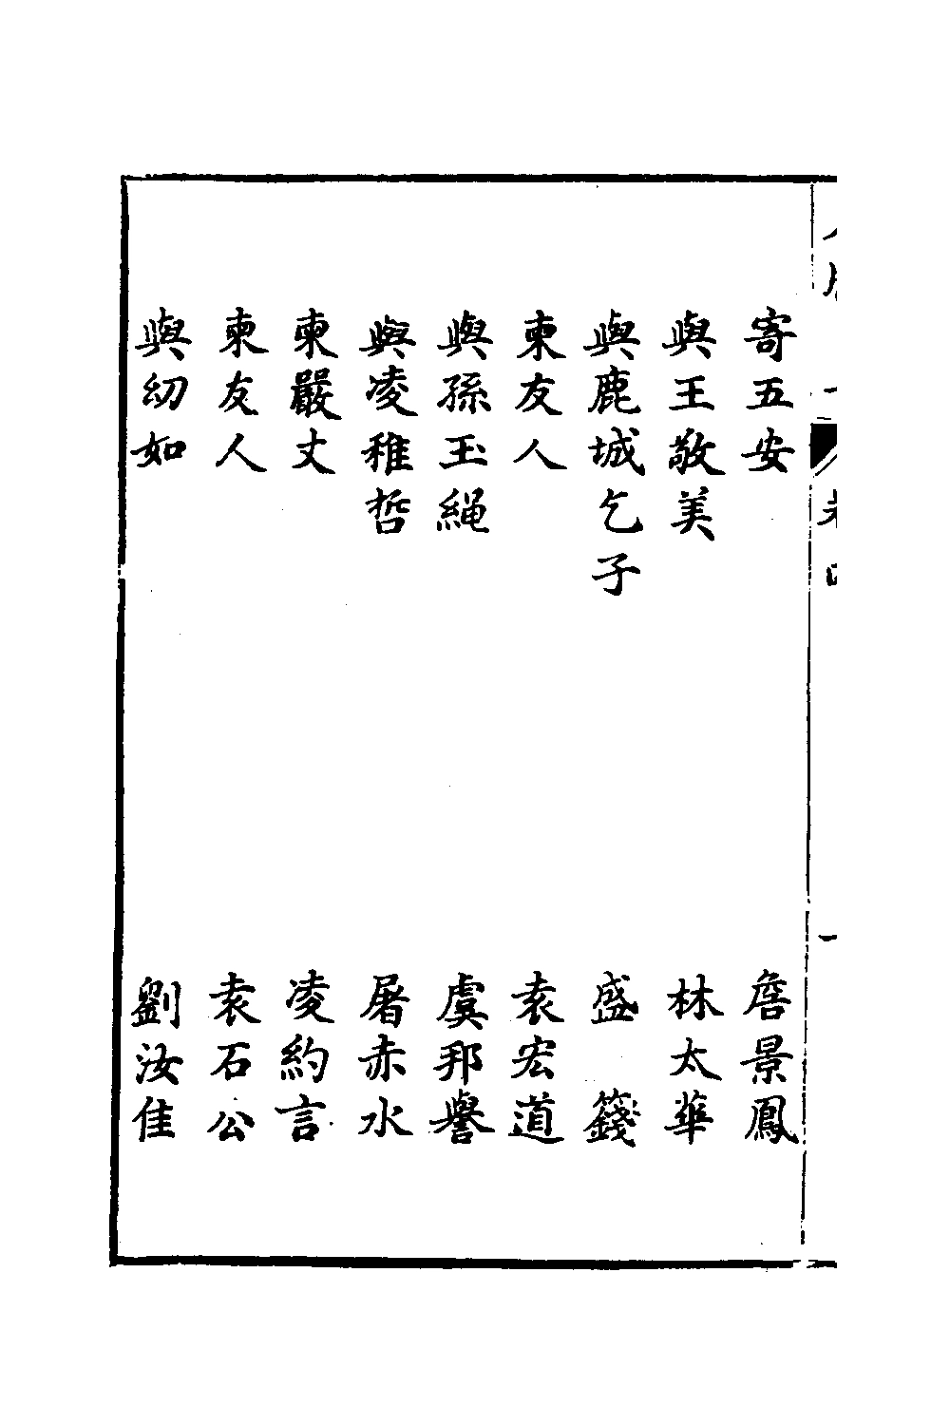 寄五安 詹景鳳
與王敬美 林太華
與鹿城乞子 盛 籛
柬友人 袁宏道
與孫玉繩 虞邦譽
與凌稚哲 屠赤水
柬嚴丈 凌約言
柬友人 袁石公
與幼如 劉汝佳